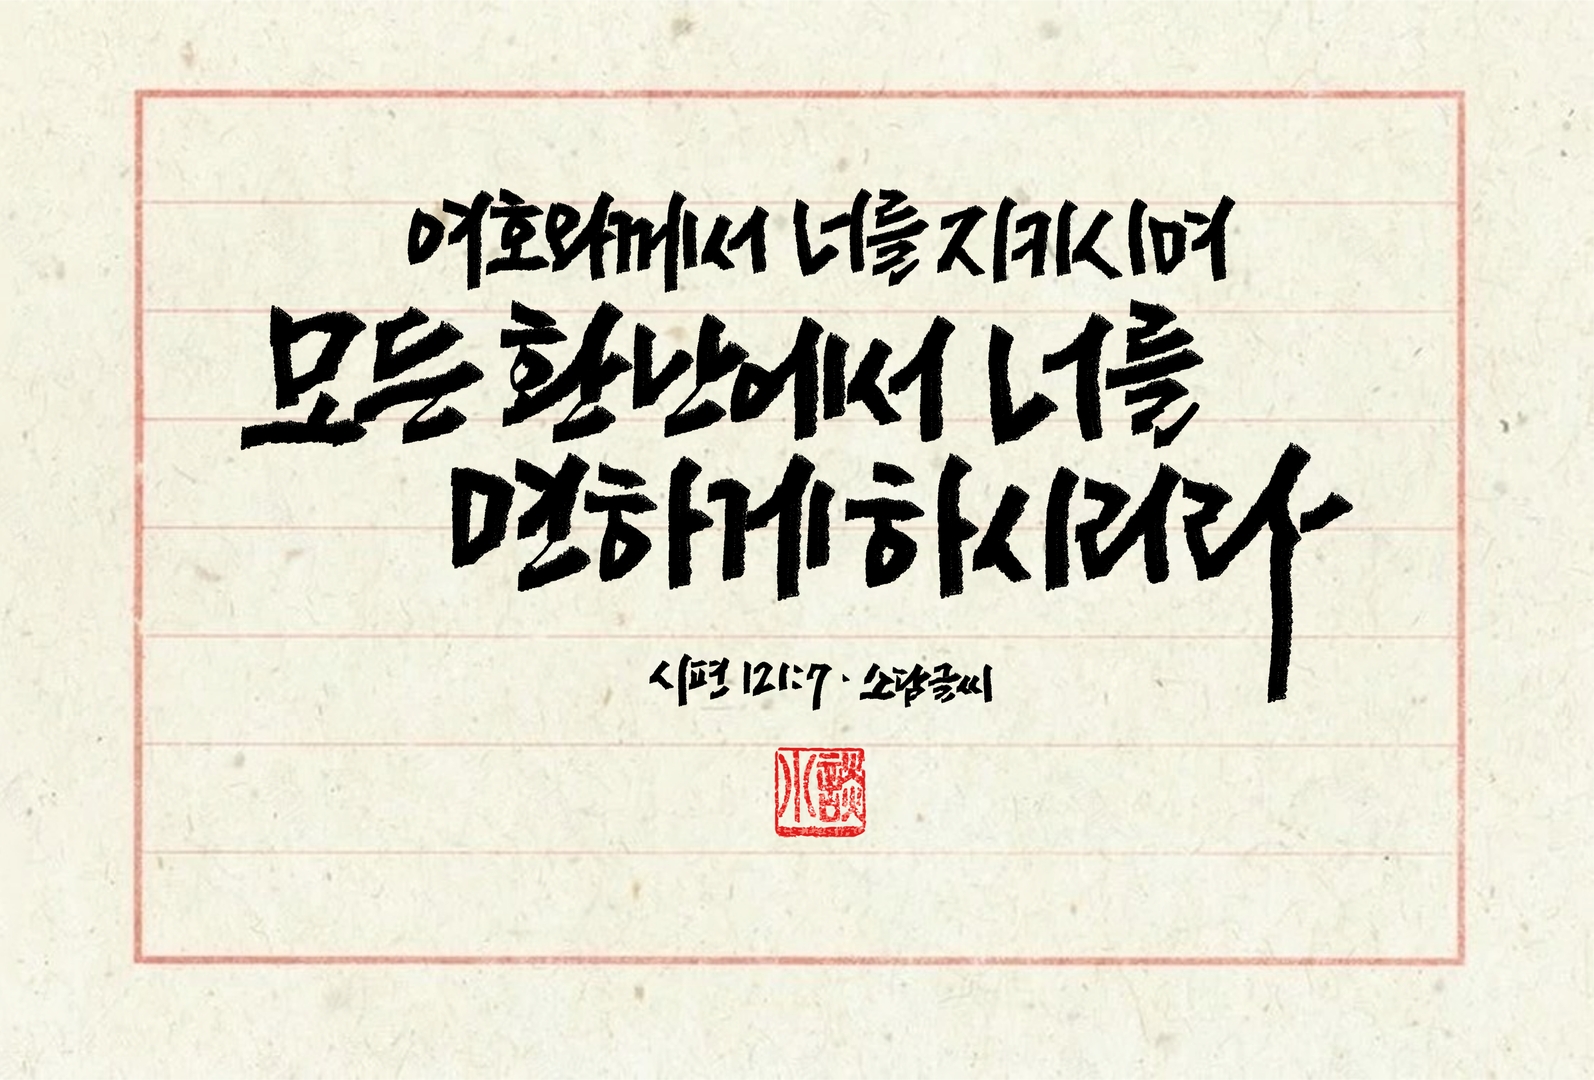 여호와께서 너를 지키시며
모든 환난에서 너를
면하게 하시리라
시편 121:7 · 소담글씨
小談